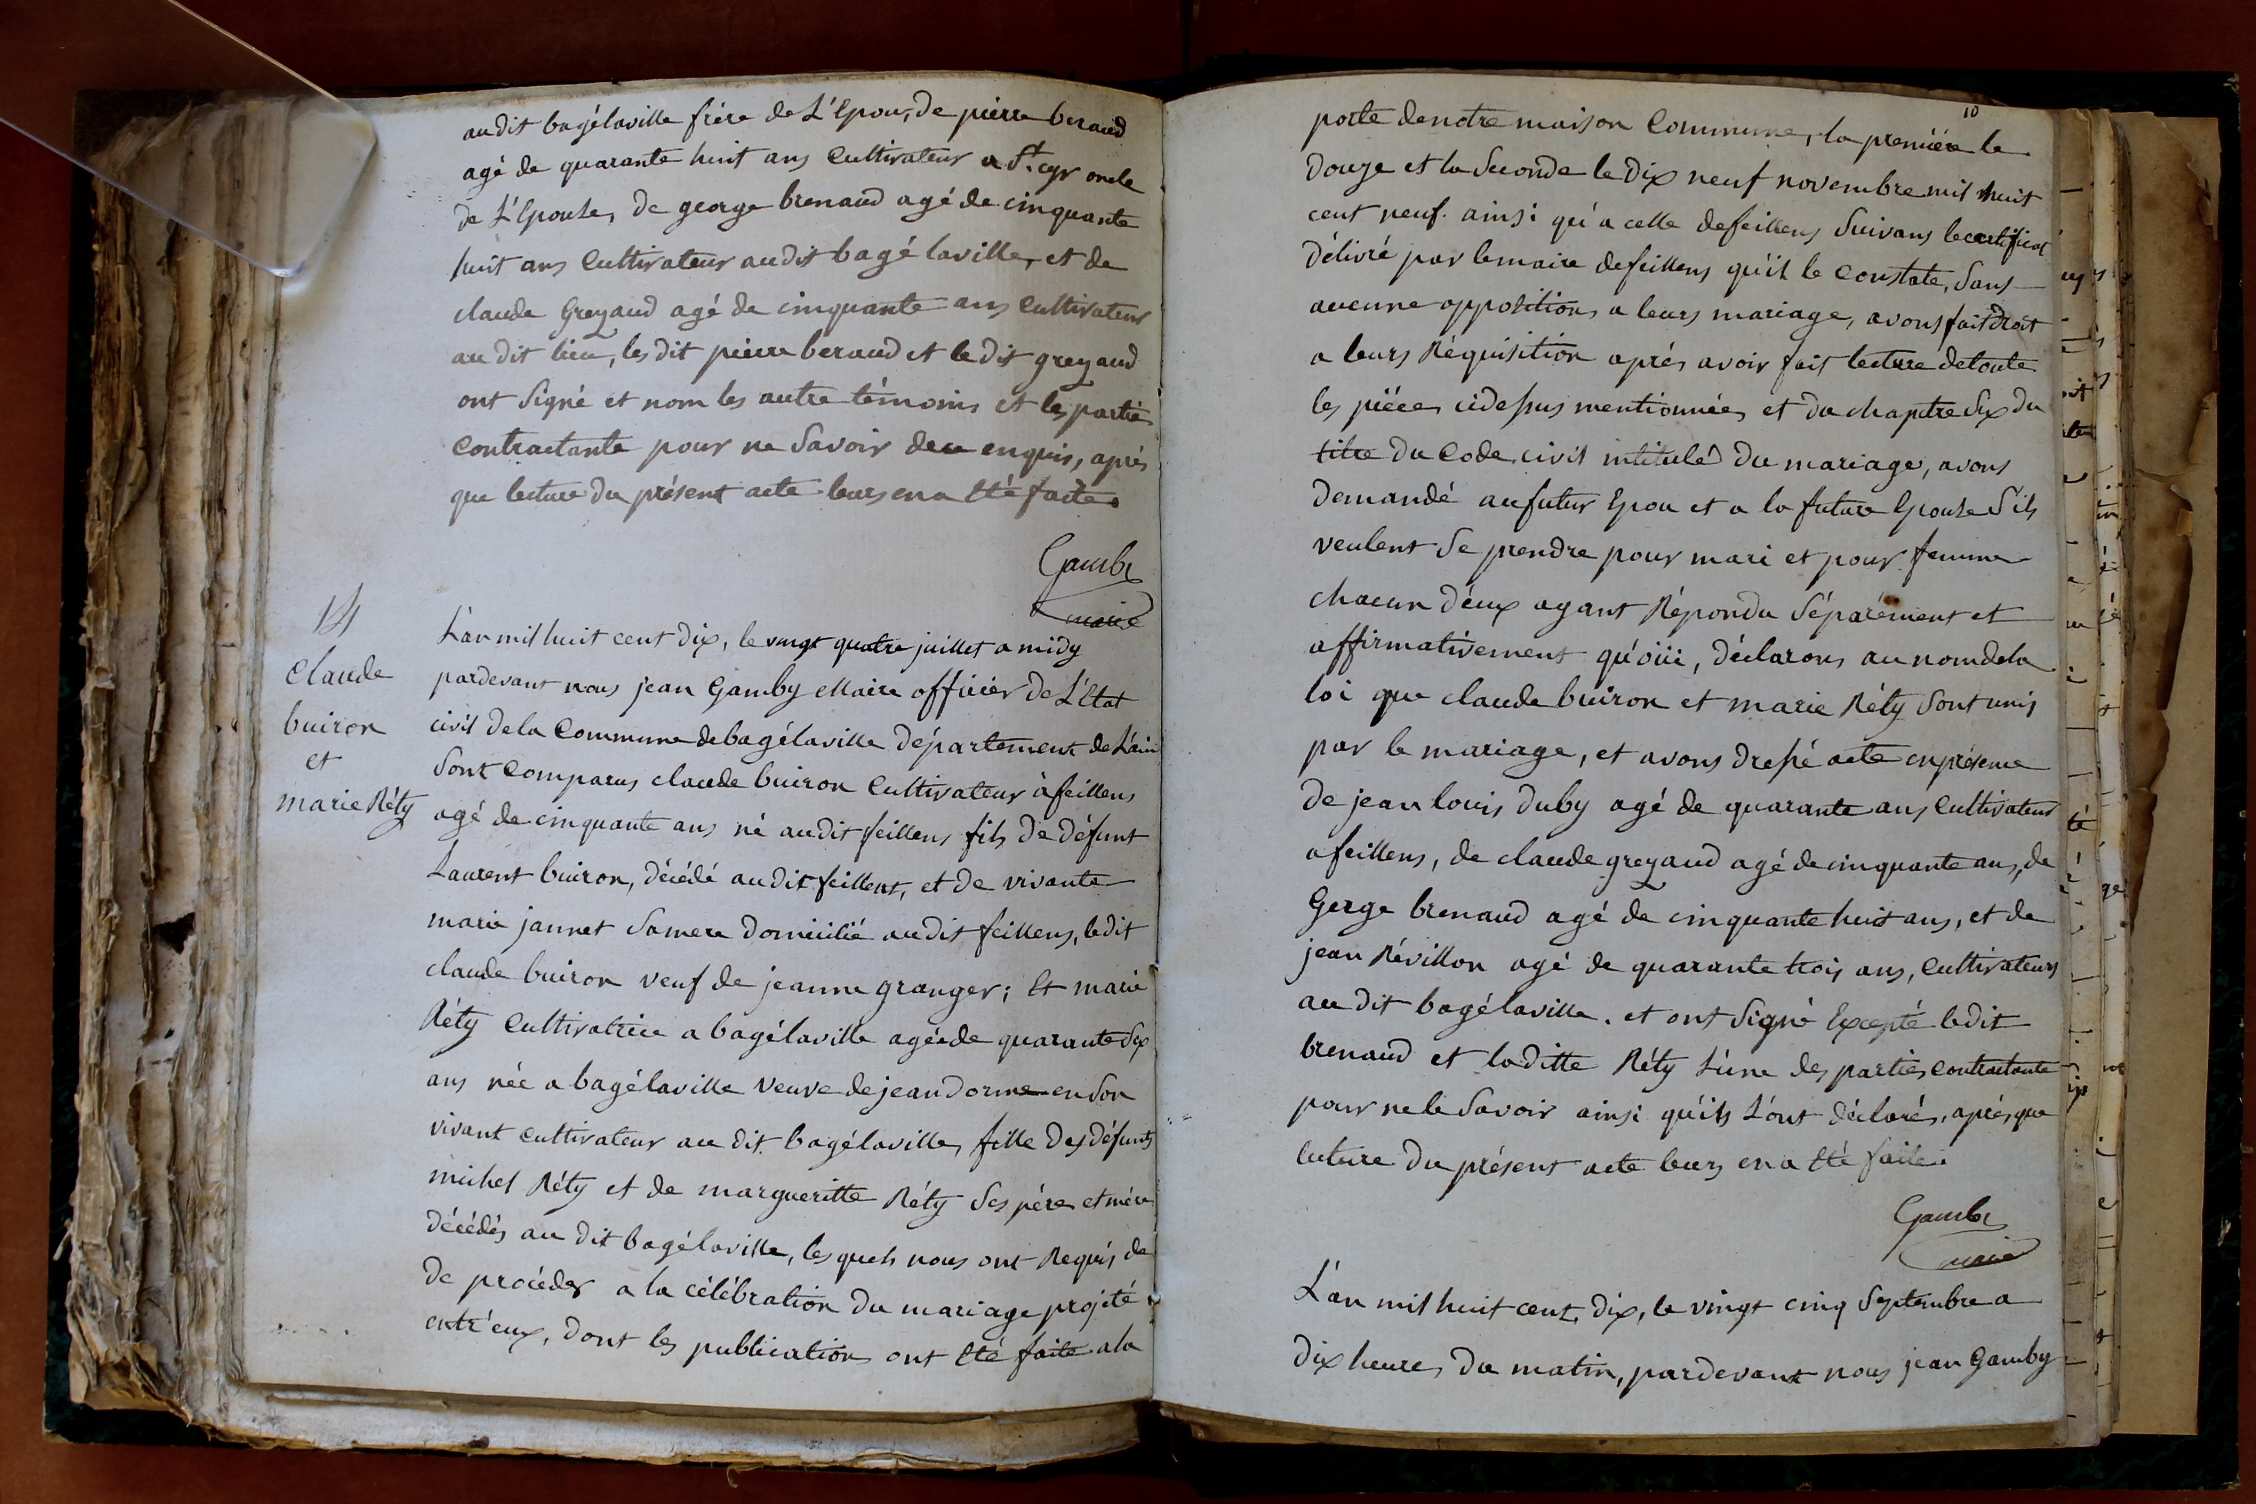 audit bagélaville frére de L'Epou, de pierre beraud
agé de quarante huit ans Cultivateur a St. cyr oncle
de L'Epouse, de george brenaud agé de cinquante
huit ans Cultivateur audit bagé laville, et de
claude Greyaud agé de cinquante ans Cultivateur
au dit lieu, les dit pierre beraud et le dit greyaud
ont Signé et nom les autre témoins et les partie
Contractante pour ne Savoir de ce enquis, aprés
que lecture du présent acte leurs en a Eté faite.
Gamby
maire
14
Claude
buiron
et
marie Réty
L'an mil huit cent dix, le vingt quatre juillet a midy
pardevant nous jean Gamby Maire officier de L'Etat
civil de la Commune de bagélaville département de L'ain
Sont Comparus claude buiron Cultivateur à feillens
agé de cinquante ans né audit feillens fils de défunt
Laurent buiron, décédé audit feillens, et de vivante
marie jannet Sa mere domicilié au dit feillens, le dit
claude buiron veuf de jeanne granger; Et marie
Réty Cultivatrice a bagélaville agée de quarante Six
ans née a bagélaville veuve de jean dorme en Son
vivant cultivateur au dit bagélaville, fille des défunts
michel Réty et de margueritte Réty Ses pére et mére
décédés au dit bagélaville, les quels nous ont Requis de
de procéder a la célébration du mariage projeté
entr'eux, dont les publications ont Eté faite a la
10
porte de notre maison Commune, la premiére le
douze et la Seconde le dix neuf novembre mil huit
cent neuf. ainsi qu'a celle de feillens Suivans le certificat
délivré par le maire de feillens qu'il le constate, Sans
aucune oppositions a leurs mariage, avons fait droit
a leurs Réquisition aprés avoir fait lecture de toute
les piéces cidessus mentionnées et du chapitre Six du
titre du Code civil intitulé du mariage, avons
demandé au futur Epou et a la future Epouse S'ils
veulent Se prendre pour mari et pour femme
chacun d'eux ayant Répondu Séparément et
affirmativement qu'oüi, déclarons au nom de la
loi que claude buiron et marie Réty Sont unis
par le mariage, et avons dressé acte en présence
de jean louis duby agé de quarante ans Cultivateur
a feillens, de claude greyaud agé de cinquante ans, de
Gerge brenaud agé de cinquante huit ans, et de
jean Révillon agé de quarante trois ans, Cultivateurs
au dit bagélaville. et ont Signé Excepté le dit
brenaud et laditte Réty L'une des parties contractante
pour ne le Savoir ainsi qu'ils L'ont déclarés, aprés que
lecture du présent acte leurs en a Eté faite.
Gamby
maire
L'an mil huit cent dix, le vingt cinq Septembre a
dix heures du matin, pardevant nous jean Gamby